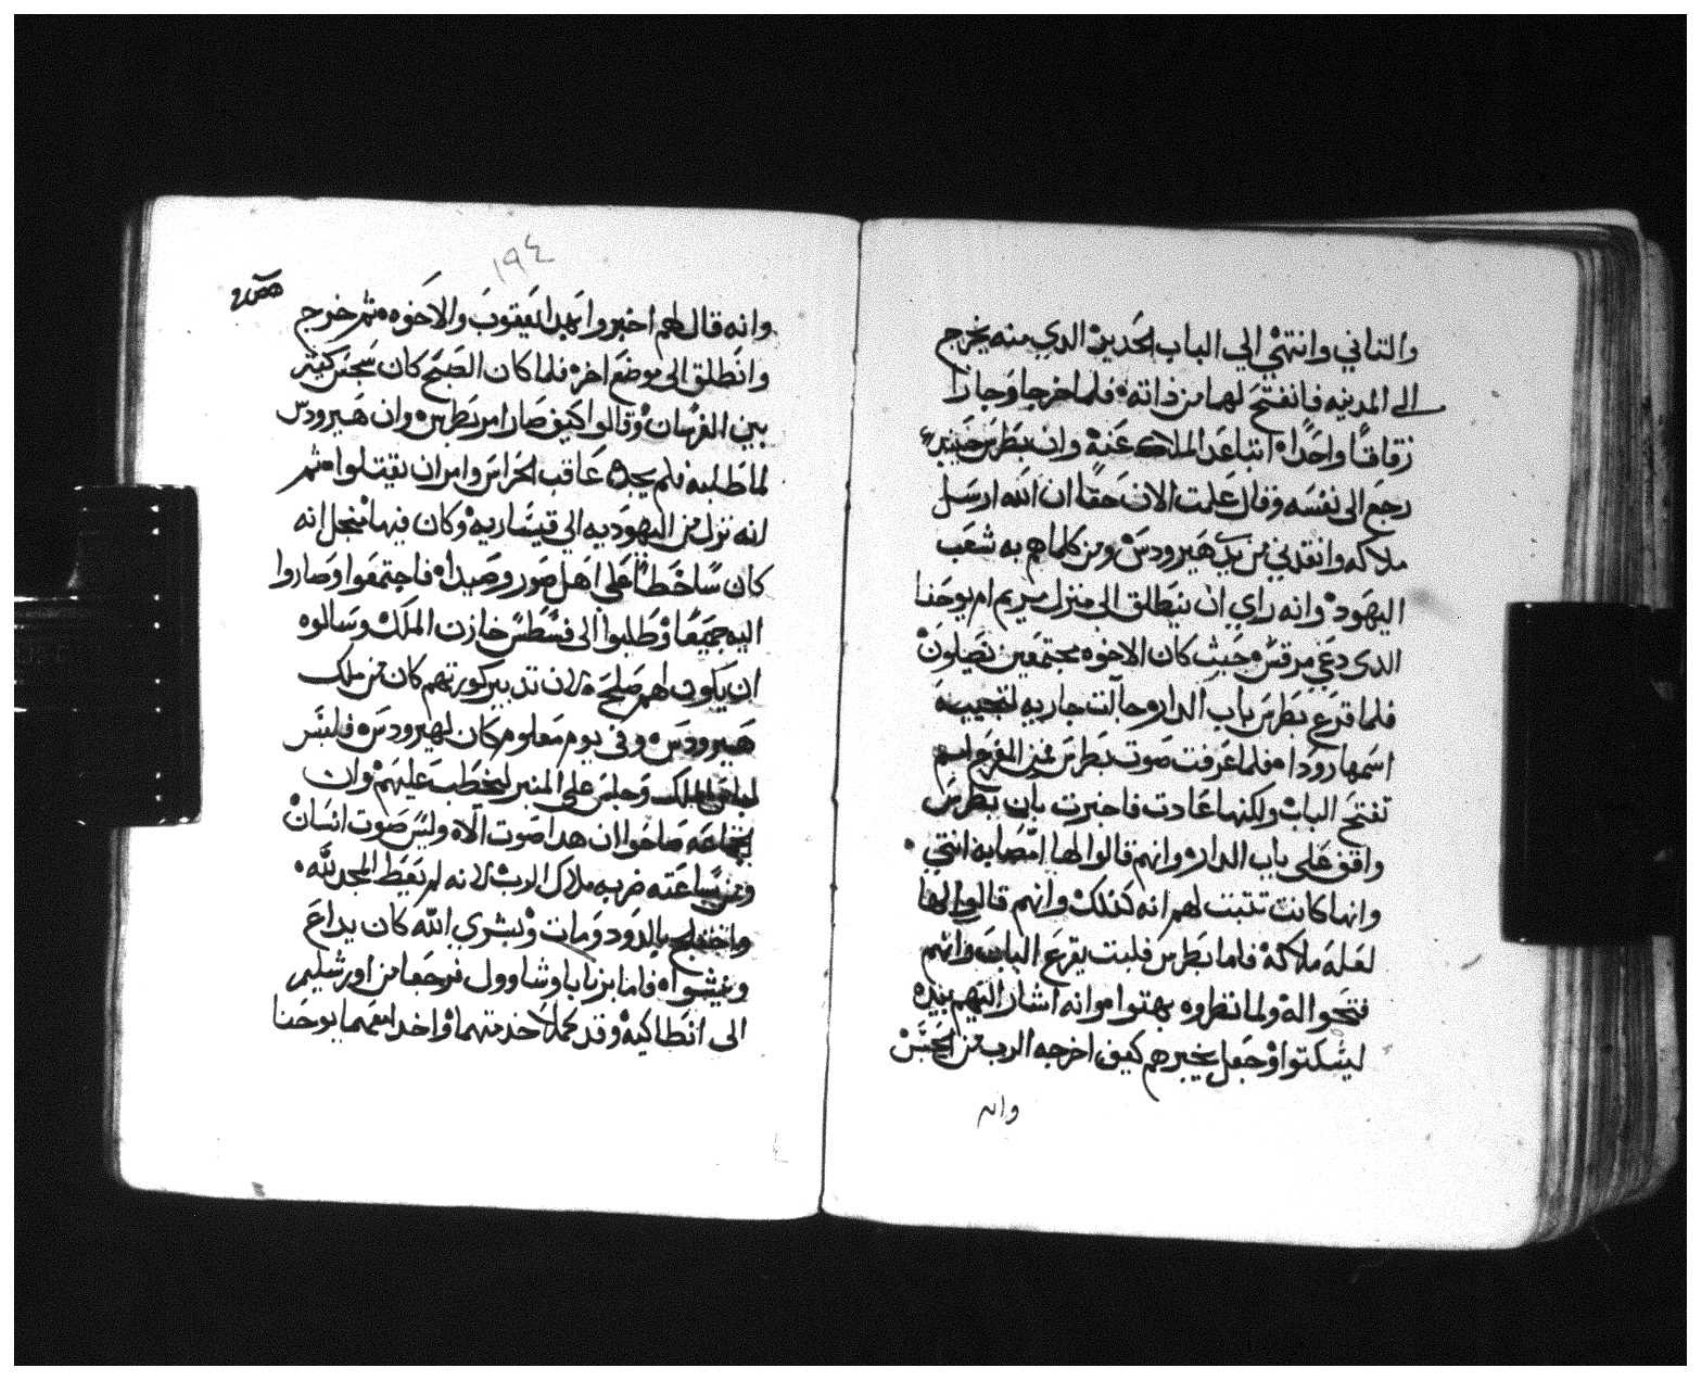 والتاني وانتهي الي الباب الحديد الدي منه يخرج
الي المدينه فانفتح لهما من داته فلما خرجا وجازا
زقاقا واحدا ابتاعد الملاك عنه وان بطرس حينيد
رجع الى نفسه وقال علمت الان حقا ان الله ارسل
ملاكه وانقدني من يد هيرودس ومن كلما هم به شعب
اليهود وانه راي ان ينطلق الى منزل مريم ام يوحنا
الدى دعي مرقس حيث كان الاخوه مجتمعين يصلون
فلما قرع بطرس باب الدار جات جاريه لتجيبه
اسمها رودا فلما عرفت صوت بطرس فمن الفرح لم
تفتح الباب ولكنها عادت فاخبرت بان بطرس
واقف على باب الدار وانهم قالوا لها امصابه انتي
وانها كانت تتبت لهم انه كدلك وانهم قالوا لها
لعله ملاكه فاما بطرس فلبت يقرع الباب وانهم
فتحوا له ولما نظروه بهتوا وانه اشار اليهم بيده
ليسكتوا وجعل يخبرهم كيف اخرجه الرب من الحبس
وانه
١٩٤
وانه قال لهم اخبروا بهدا يعقوب والاخوه تم خرج
وانطلق الى موضع اخر فلما كان الصبح كان سجس كتير
بين الفرسان وقالوا كيف صار امر بطرس وان هيرودس
لما طلبه فلم يجده عاقب الحراس وامر ان يقتلوا تم
انه نزل من اليهوديه الي قيساريه وكان فيها من اجل انه
كان ساخطا على اهل صور وصيدا فاجتمعوا وصاروا
اليه جميعا وطلبوا الى فسطس خازن الملك وسالوه
ان يكون لهم صلح لان تدبير كورتهم كان من ملك
هيرودس وفي يوم معلوم كان لهيرودس فلبس
لباس الملك وجلس على المنبر ليخطب عليهم وان
الجماعه صاحوا ان هدا صوت الاه وليس صوت انسان
ومن ساعته ضربه ملاك الرب لانه لم يعط المجد لله
بالدود ومات وبشري الله كان يداع
وينشوا فاما برنابا وشاوول فرجعا من اورشليم
الى انطاكيه وقد كملا خدمتهما واخدا معهما يوحنا